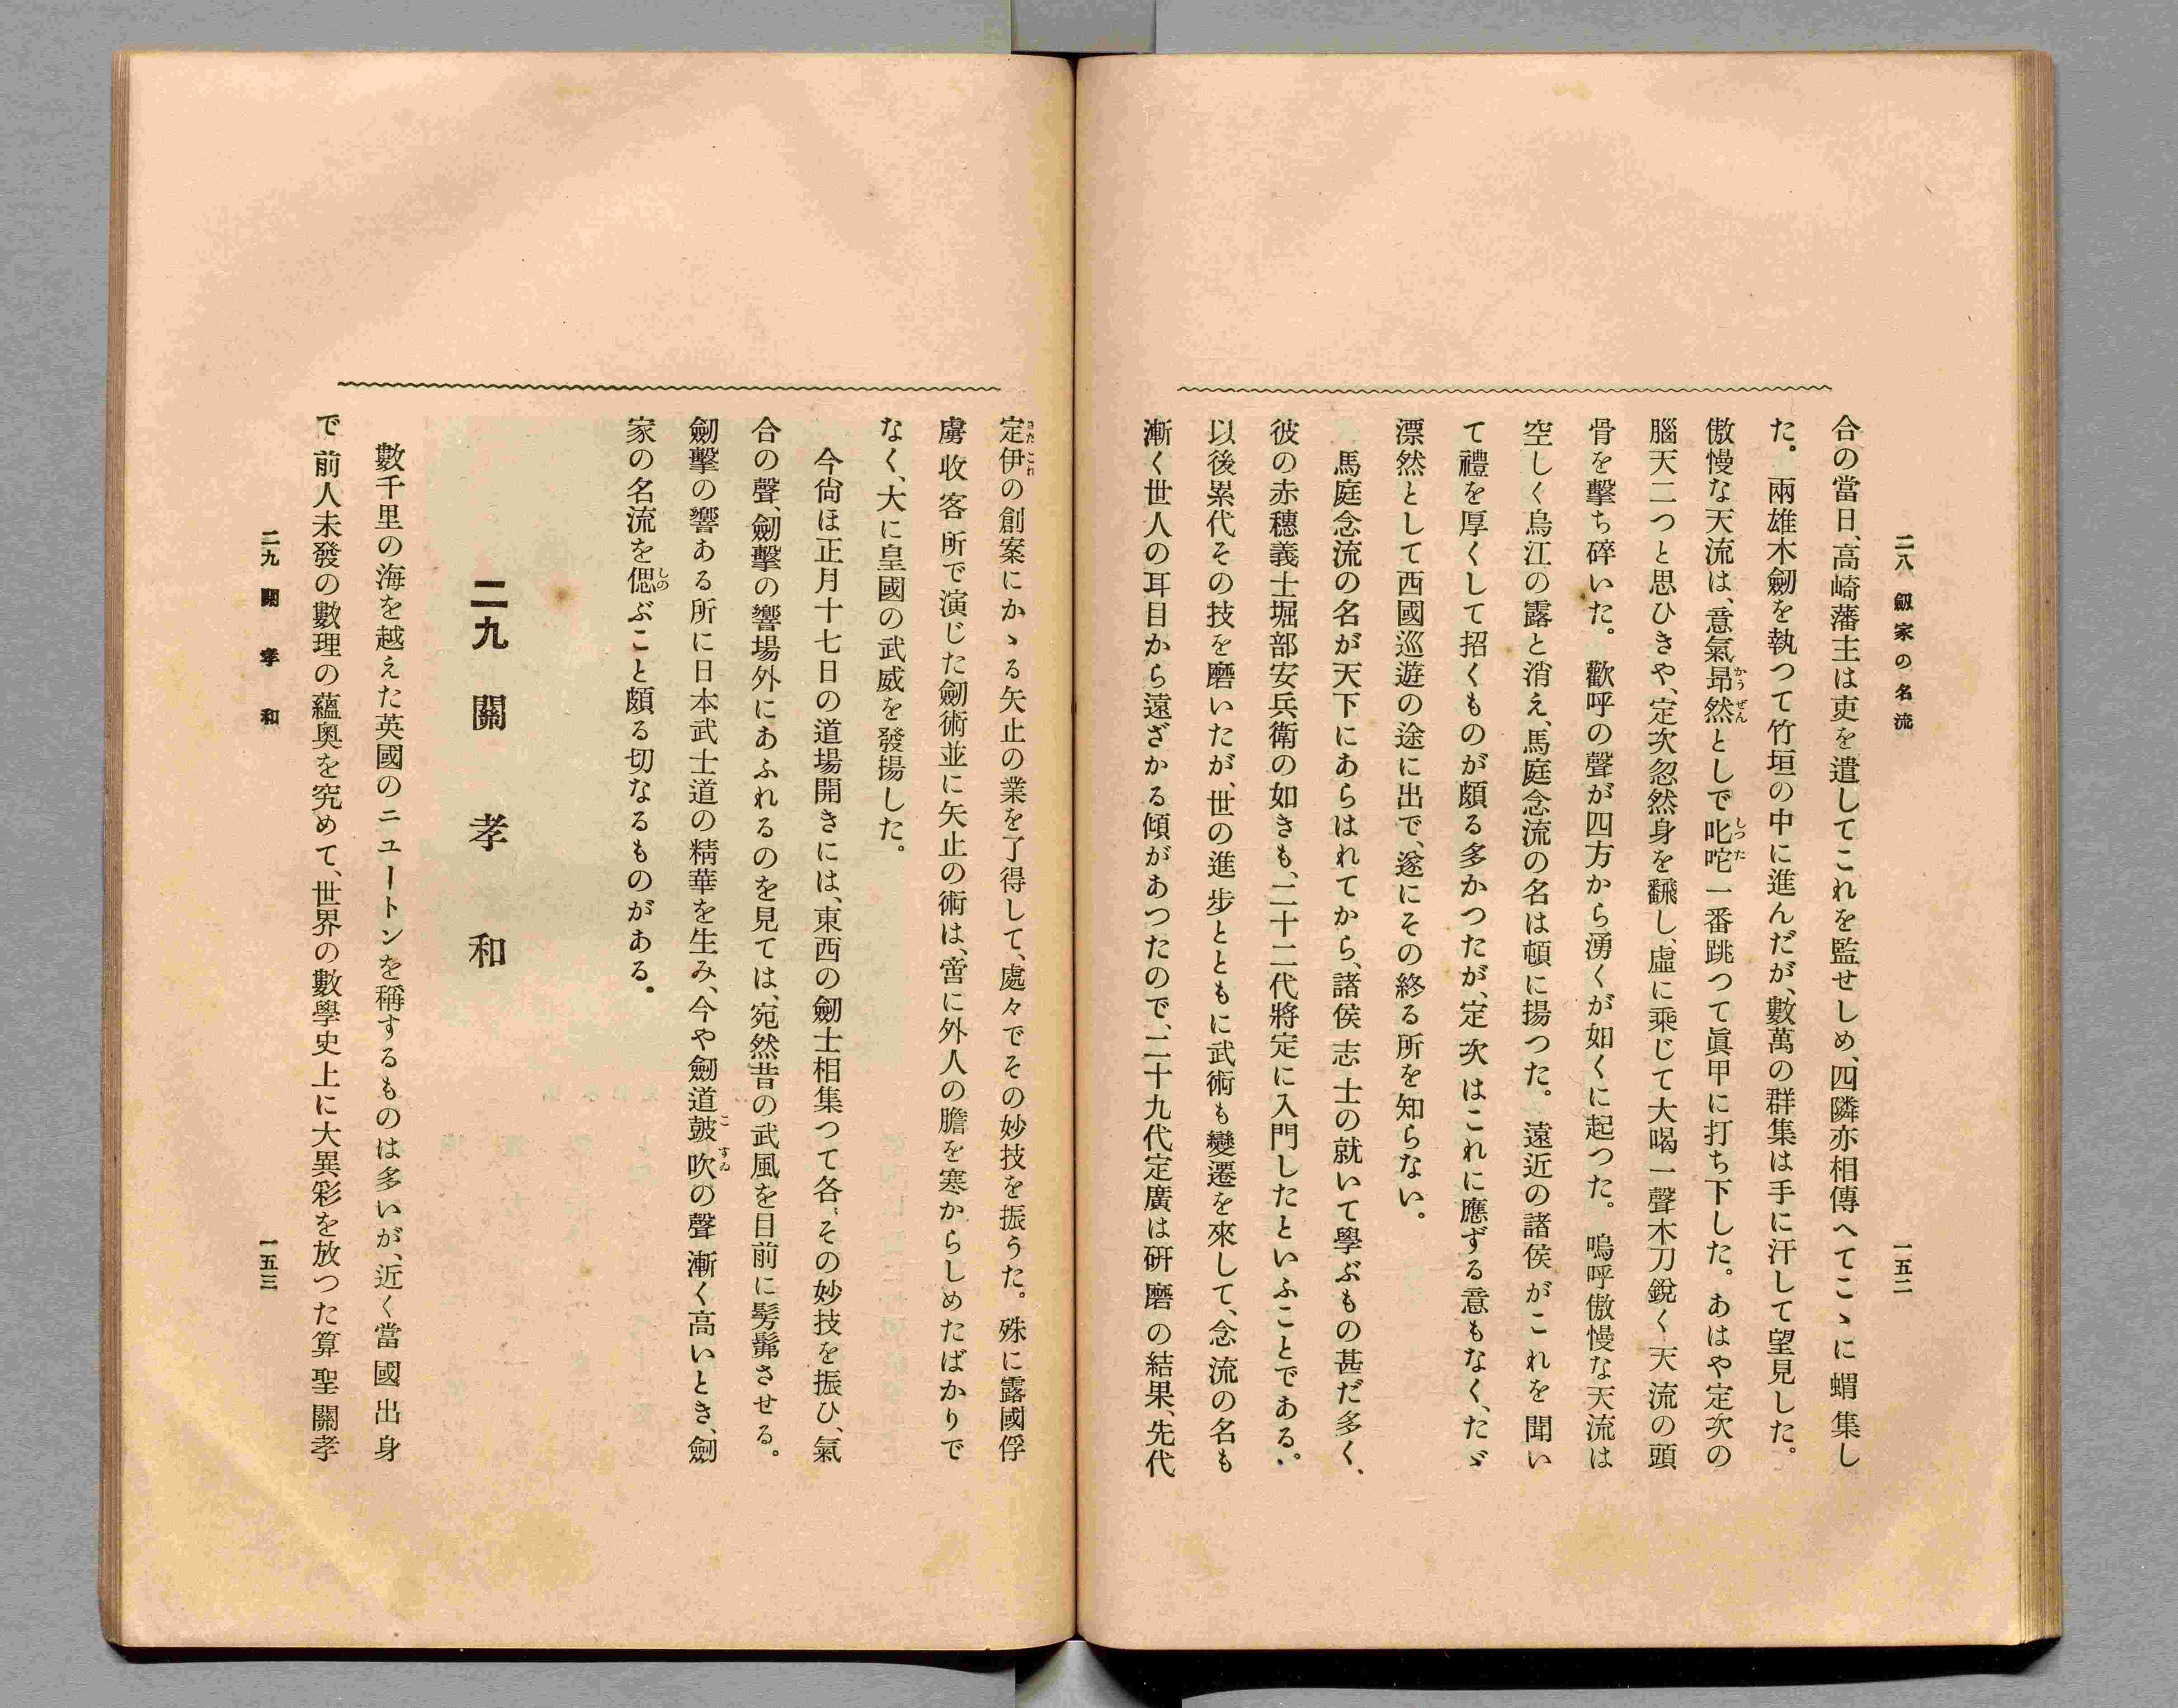 二八 劔家の名流
一五二
合の當日、高崎藩主は吏を遣してこれを監せしめ、四隣亦相傳へてこゝに蝟集し
た。兩雄木劒を執つて竹垣の中に進んだが、數萬の群集は手に汗して望見した。
傲慢な天流は、意氣昂然としで叱咤一番跳つて眞甲に打ち下した。あはや定次の
腦天二つと思ひきや、定次忽然身を飜し、虛に乘じて大喝一聲木刀銳く天流の頭
骨を擊ち碎いた。歡呼の聲が四方から湧くが如くに起つた。嗚呼傲慢な天流は
空しく烏江の露と消え、馬庭念流の名は頓に揚つた。遠近の諸侯がこれを聞い
て禮を厚くして招くものが頗る多かつたが、定次はこれに應ずる意もなく、たゞ
漂然として西國巡遊の途に出で、遂にその終る所を知らない。
馬庭念流の名が天下にあらはれてから、諸侯志士の就いて學ぶもの甚だ多く、
彼の赤穗義士堀部安兵衛の如きも、二十二代將定に入門したといふことである。
以後累代その技を磨いたが、世の進步とともに武術も變遷を來して、念流の名も
漸く世人の耳目から遠ざかる傾があつたので、二十九代定廣は硏磨の結果、先代
定伊の創案にかゝる矢止の業を了得して、處々でその妙技を振うた。殊に露國俘
虜收客所で演じた劒術並に矢止の術は、啻に外人の膽を寒からしめたばかりで
なく、大に皇國の武威を發揚した。
今尙ほ正月十七日の道場開きには、東西の劒士相集つて各〻その妙技を振ひ、氣
合の聲、劒擊の響場外にあふれるのを見ては、宛然昔の武風を目前に髣髴させる。
劒擊の響ある所に日本武士道の精華を生み、今や劒道皷吹の聲漸く高いとき、劒
家の名流を偲ぶこと頗る切なるものがある。
二九 關孝和
數千里の海を越えた英國のニユートンを稱するものは多いが、近く當國出身
で前人未發の數理の蘊奧を究めて、世界の數學史上に大異彩を放つた算聖關孝
二九 關孝和
一五三